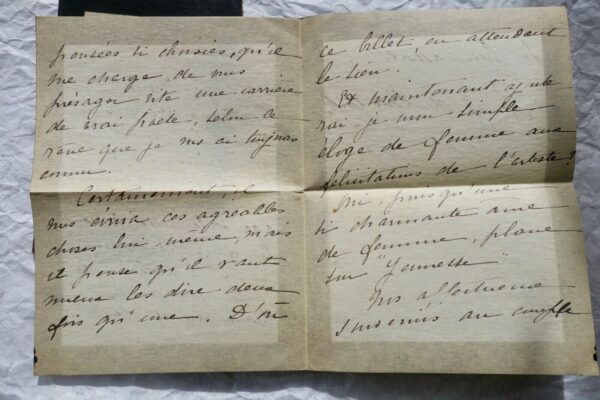 pensées si choisies, qu'il
me charge de vous
présager vite une carrière
de vrai poète, selon le
rêve que je vous ai toujours
connu.
Certainement, il
vous écrira ces agréables
choses lui-même, mais
il pense qu'il vaut
mieux les dire deux
fois qu'une. D'où
ce billet, en attendant
le sien.
Et maintenant ajoute
rai-je mon simple
éloge de femme aux
félicitations de l'artiste ?
Oui, puisqu'une
si charmante âme
de femme, plane
sur "Jeunesse"
Nos affectueux
souvenirs au couple